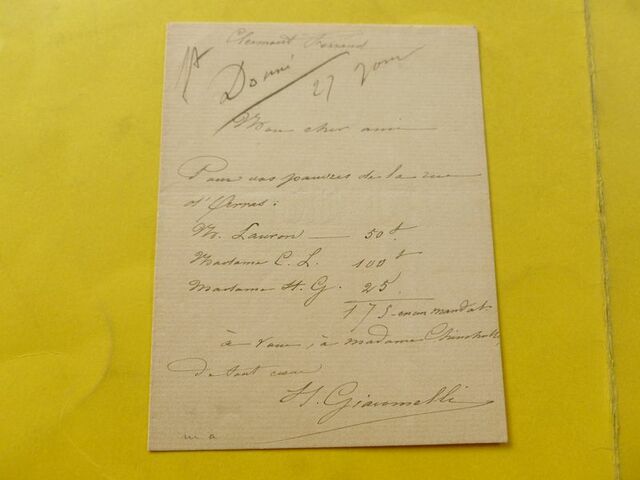 Clermont Ferrand
Donné 27
Mon cher ami
Pour vos pauvres de la rue
d'
M. Lauron — 50 f.
Madame C. L. 100 f
Madame H. G. 25
175 en un mandat
à vous, à madame
De tout cœur
H. Giacomelli
m a